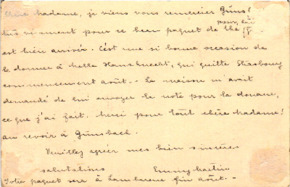 Chère madame, je viens vous remercier
pour le
sincèrement pour ce beau paquet de thé
est bien arrivé. C'est une si bonne occasion de
le donner à Melle Hausknecht, qui quitte Strasbourg
commencement août. - la maison m'avait
demandé de lui envoyer la note pour la douane,
ce que j'ai fait. Merci pour tout chère madame!
au revoir à Günsbach.
Veuillez agréer mes bien sincères
salutations Emmy Martin
paquet à Lambarene fin août. -